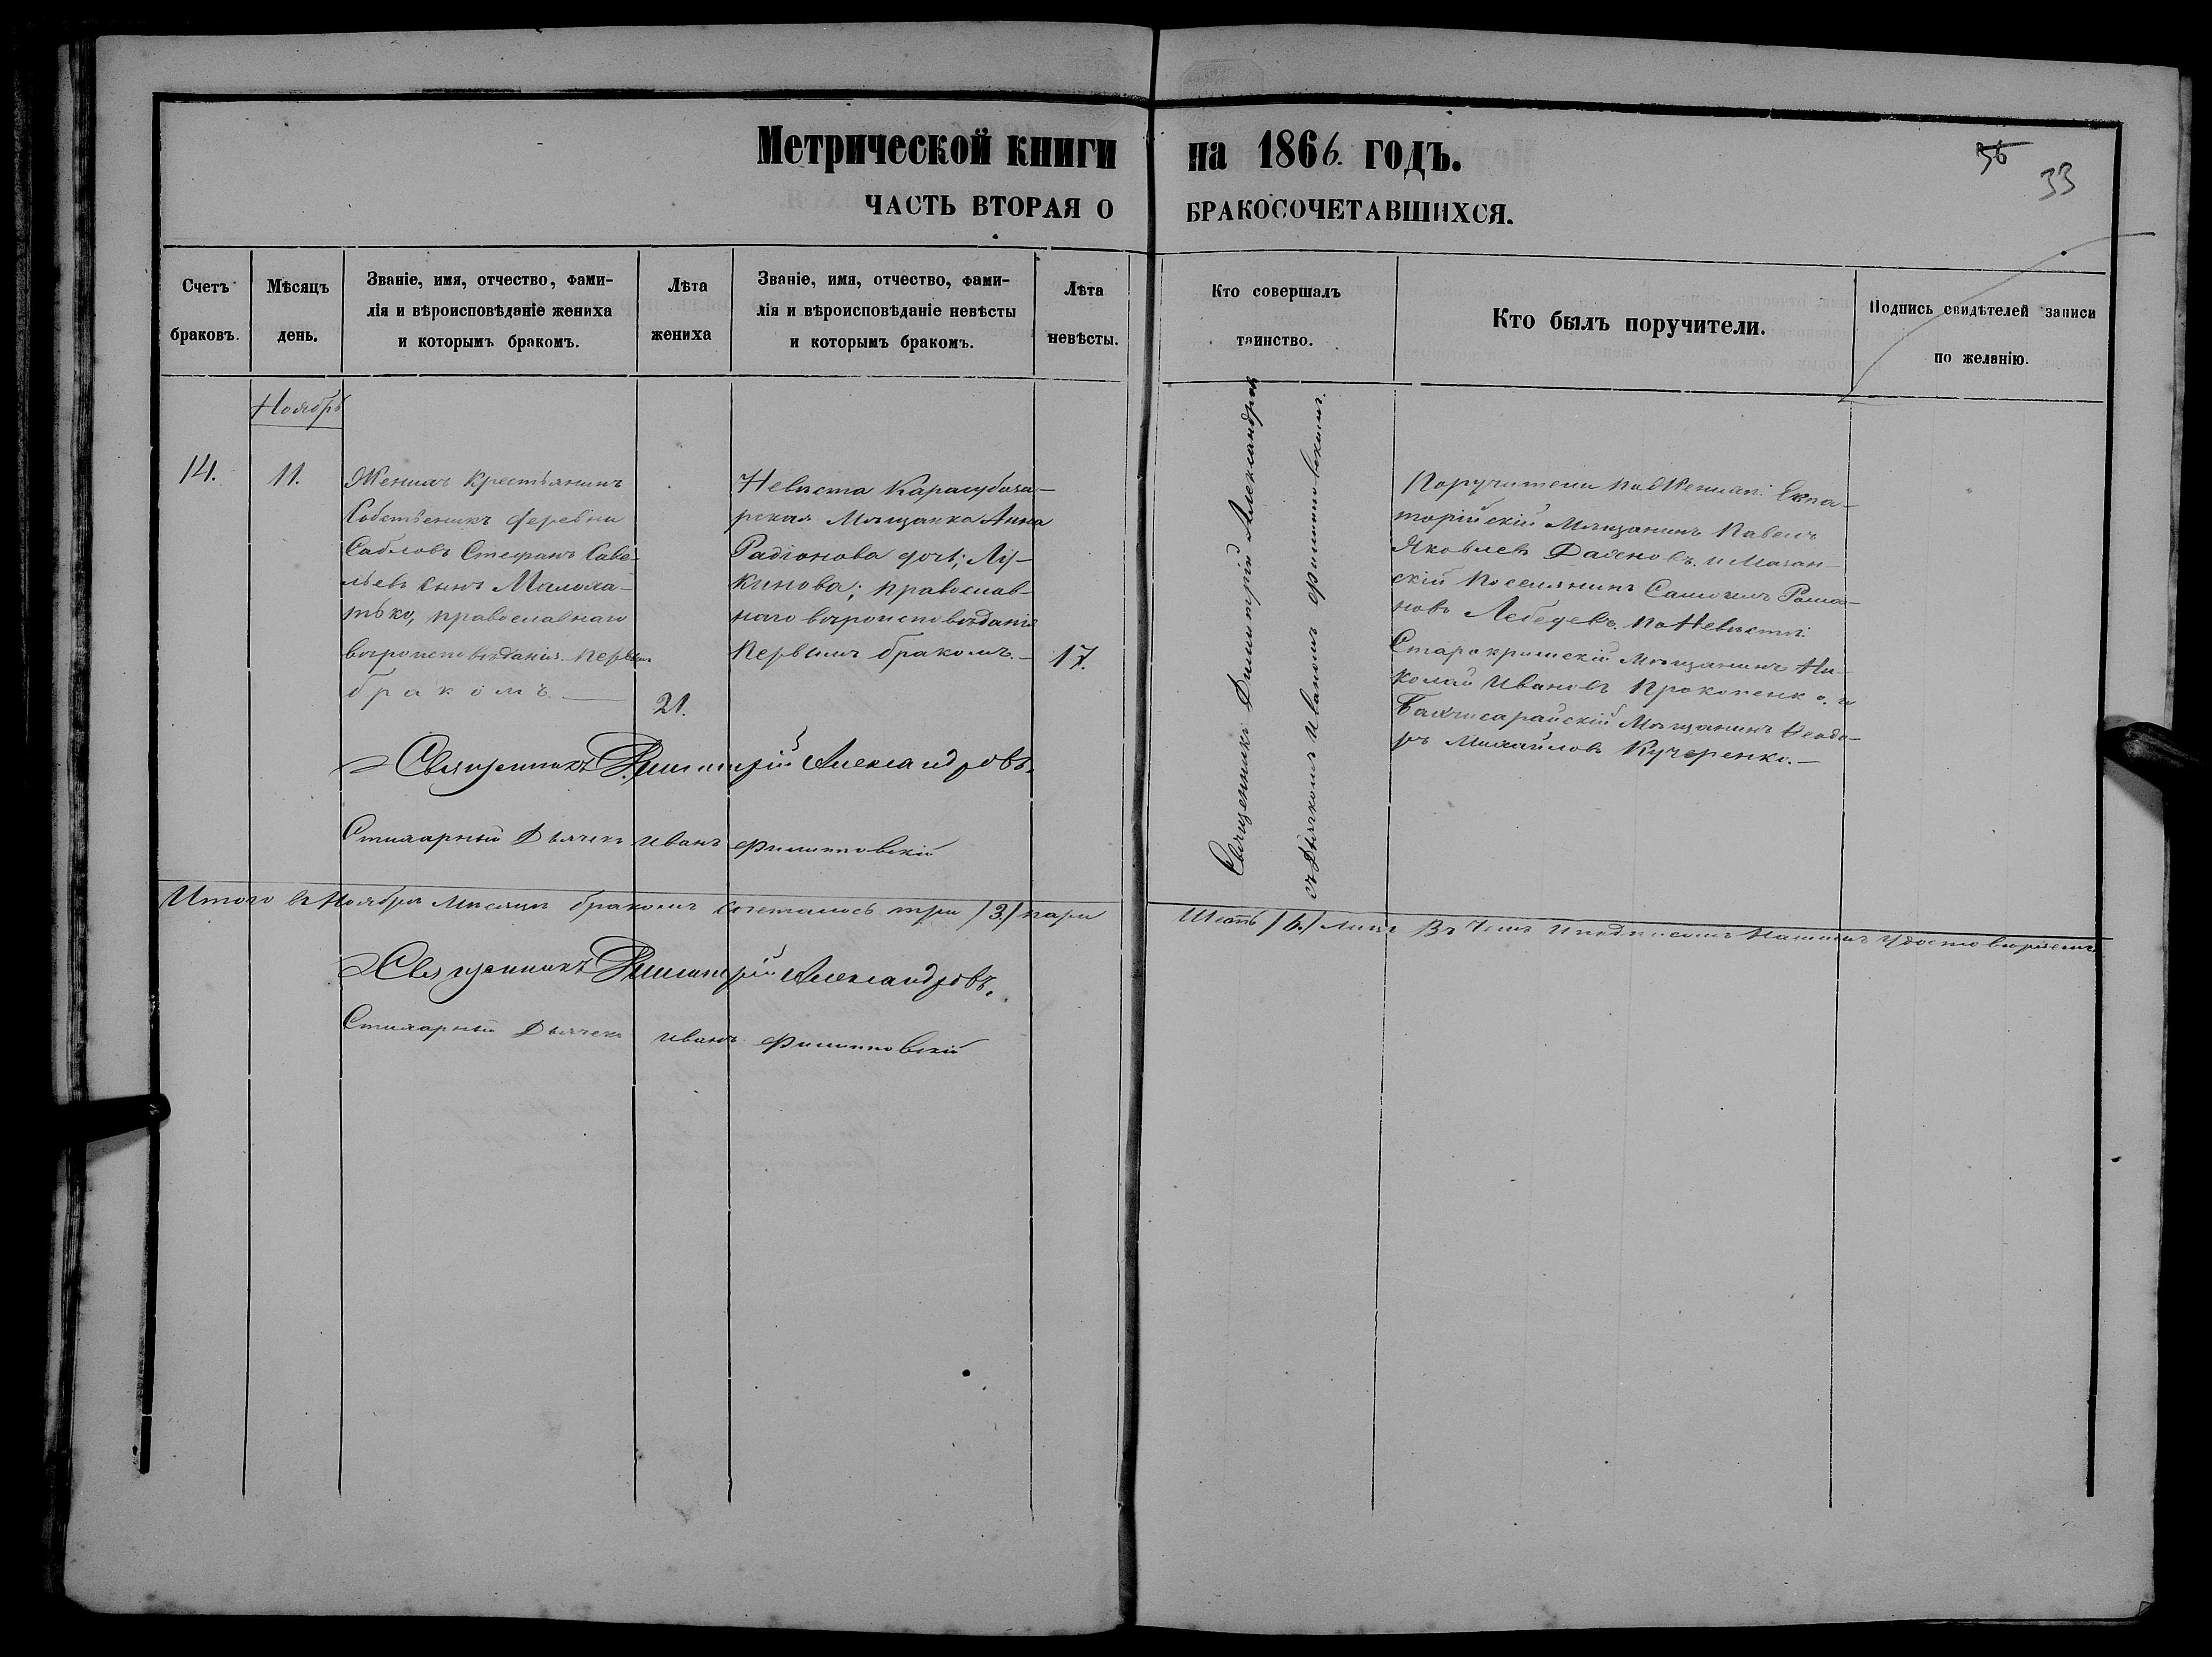 Метрической книги на 1866. годъ.
36
33
ЧАСТЬ ВТОРАЯ О БРАКОСОЧЕТАВШИХСЯ.
Счетъ браковъ.
Мѣсяцъ день.
Званіе, имя, отчество, фами-
лія и вѣроисповѣданіе жениха
и которымъ бракомъ.
Лѣта жениха
Званіе, имя, отчество, фами-
лія и вѣроисповѣданіе невѣсты
и которымъ бракомъ.
Лѣта невѣсты.
Кто совершалъ таинство.
Кто былъ поручители.
Подпись свидѣтелей записи
по желанію.
Ноябрь
14.
11.
Женихъ Крестьянинъ
Собственикъ деревни
Сабловъ Стефанъ Саве-
льевъ сынъ
православнаго
вѣроисповѣданія первым
бракомъ
21.
Невѣста Карасубаза-
рская Мѣщанка Анна
Радіонова дочь; Лу-
кинова; православ-
наго вѣроисповѣданія
Первымъ бракомъ
17.
Священникъ Димитрій Александров
съ Дьячкомъ Иваномъ Филипповскимъ.
Поручители по Женихѣ: Евпа-
торійскій Мѣщанинъ Павелъ
Яковлевъ и Мазан-
скій Поселянинъ Самоилъ Рома-
новъ Лебедевъ. По Невѣстѣ:
Старокримскій Мѣщанинъ Ни-
колай Ивановъ Прокопенко, и
Бахчисарайскій Мѣщанинъ Феодо-
ръ Михайловъ Кучеренко.
Священникъ Димитрій Александровъ.
Стихарный Дьячекъ Иванъ Филипповскій
Итого въ Ноябрѣ Мѣсяцѣ бракомъ сочеталось три /3./ пары
Шесть /6./ лицъ Въ чемъ и подписомъ Нашимъ удостовѣряемъ
Священникъ Димитрій Александровъ.
Стихарный Дьячекъ Иванъ Филипповскій